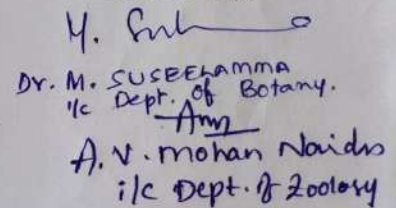 M.
Dr. M. SUSEELAMMA
i/c Dept. of Botany.
A. V. Mohan Naidu
i/c Dept. of Zoology